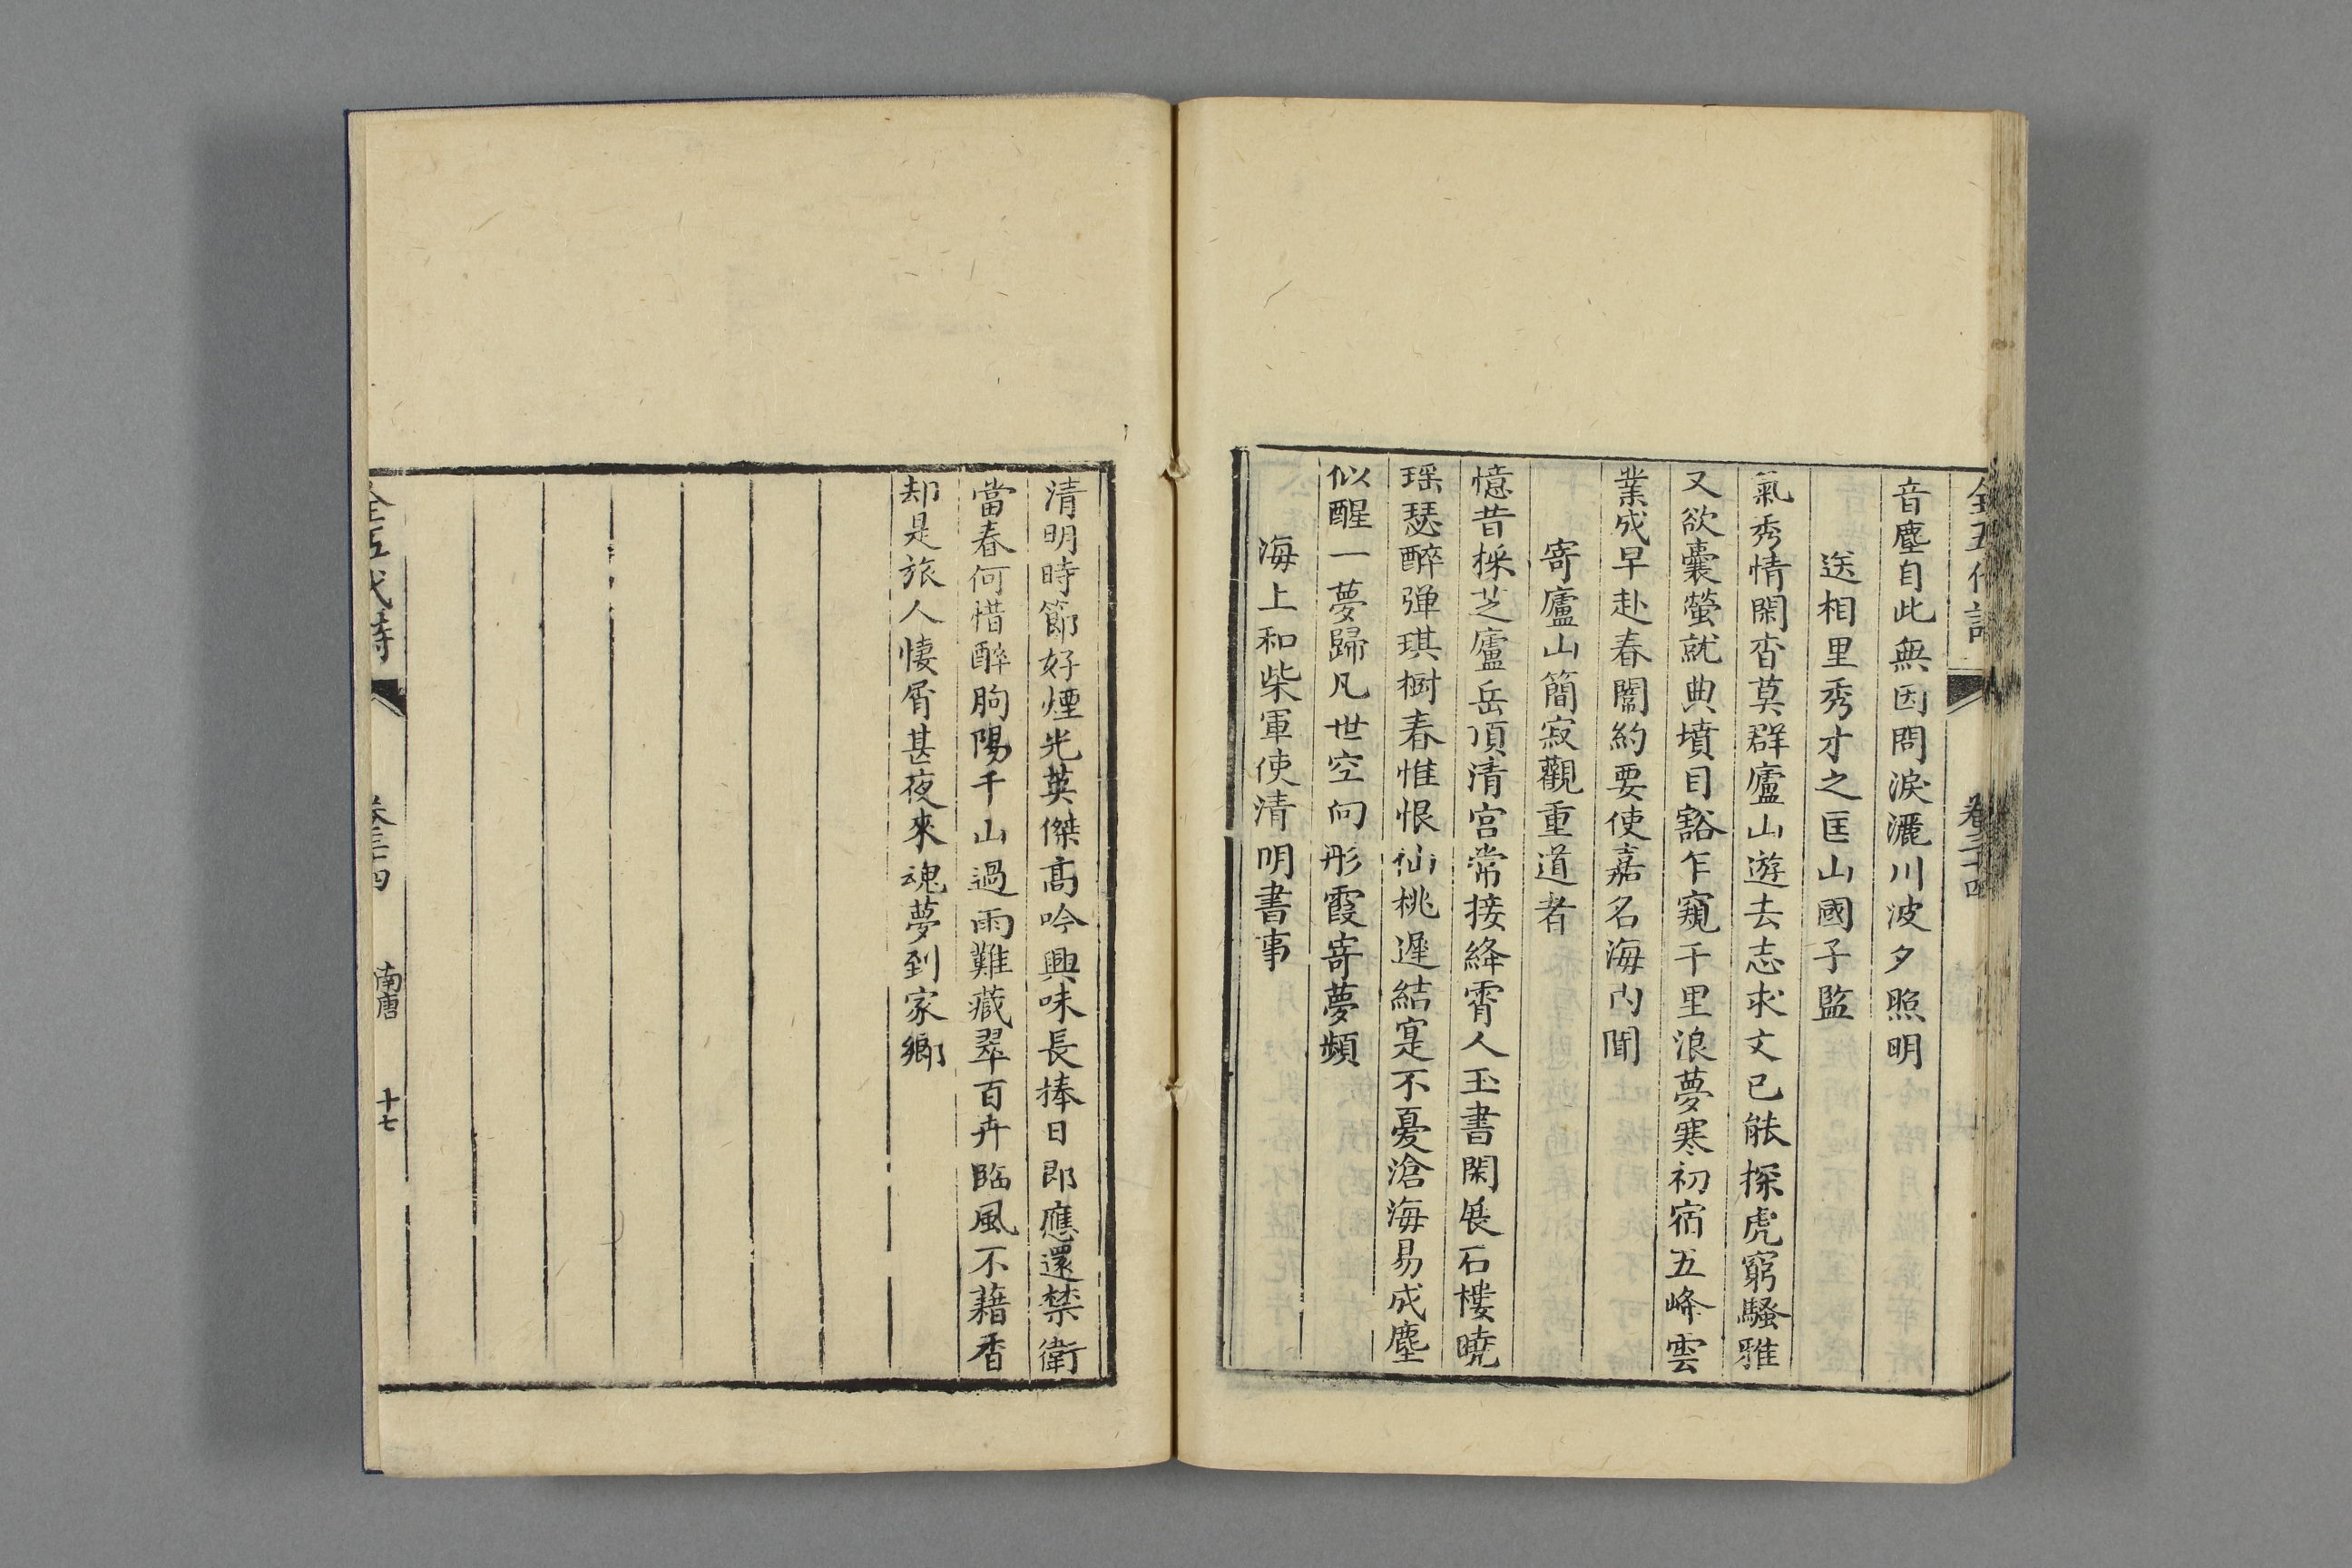 全五代詩 卷三十四
音塵自此無因問淚灑川波夕照明
送相里秀才之匡山國子監
氣秀情閑杳莫群廬山遊去志求文已能探虎窮騷雅
又欲囊螢就典墳目豁乍窺千里浪夢寒初宿五峰雲
業成早赴春闈約要使嘉名海內聞
寄廬山簡寂觀重道者
憶昔採芝廬岳頂清宫常接絳霄人玉書閑展石樓曉
瑶瑟醉弹琪樹春惟恨仙桃遲結寔不憂滄海易成塵
似醒一夢歸凡世空向彤霞寄夢頻
海上和柴軍使清明書事
清明時節好煙光英傑高吟興味長捧日即應還禁衛
當春何惜醉朐陽千山過雨難藏翠百卉臨風不藉香
却是旅人悽屑甚夜來魂夢到家鄉
全五代詩 卷三十四 南唐 十七